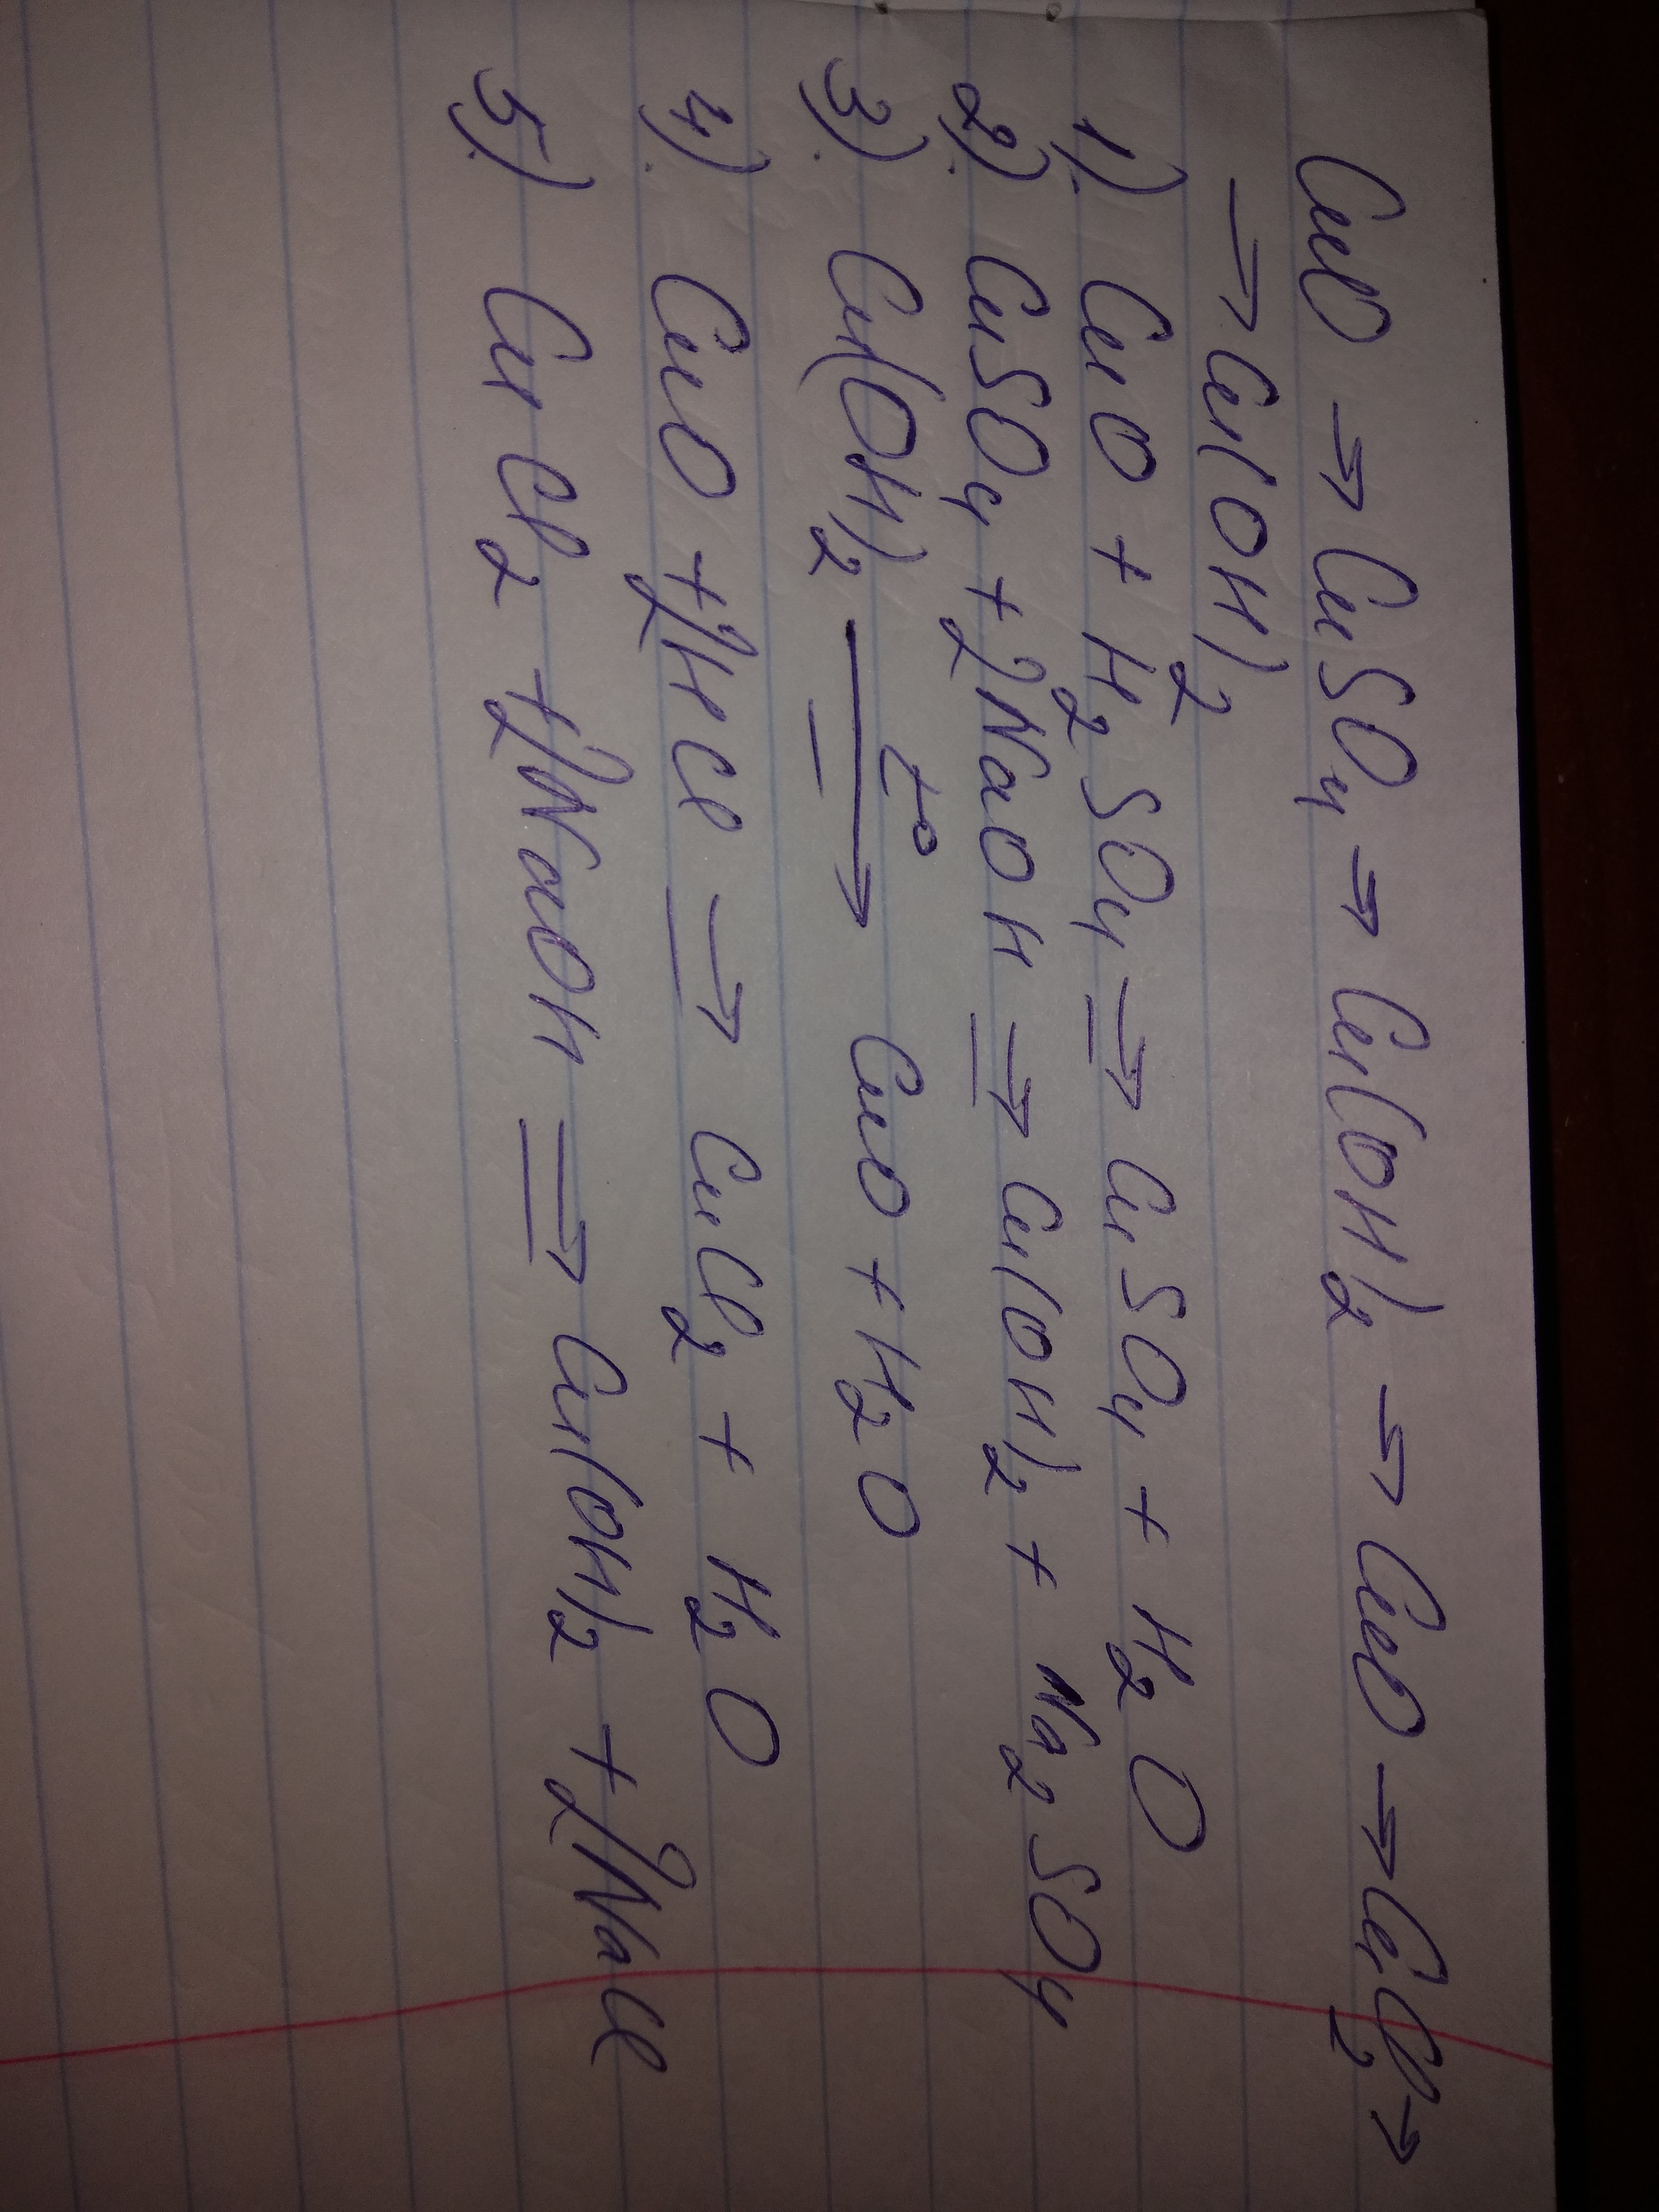 CuO → CuSO₄ → Cu(OH)₂ → CuO → CuCl₂ →
→ Cu(OH)₂
1) CuO + H₂SO₄ ⇒ CuSO₄ + H₂O
2) CuSO₄ + 2NaOH ⇒ Cu(OH)₂ + Na₂SO₄
3) Cu(OH)₂ ⇒ t° CuO + H₂O
4) CuO + 2HCl ⇒ CuCl₂ + H₂O
5) CuCl₂ + 2NaOH ⇒ Cu(OH)₂ + 2NaCl